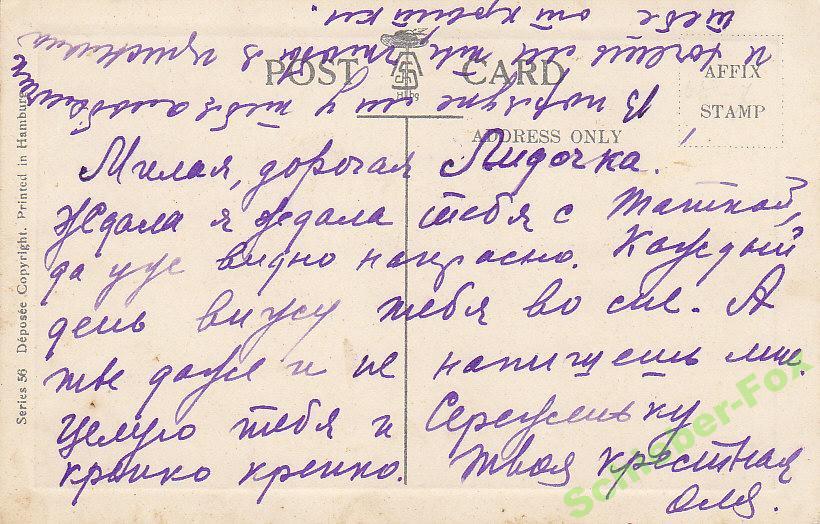 POST CARD
Hbg
ADDRESS ONLY
AFFIX
STAMP
Series 56 Déposée Copyright. Printed in Hamburg
Милая, дорогая Лидочка.
Ждала я ждала тебя с Таткой,
да уж видно напрасно. Каждый
день вижу тебя во сне. А
ты даже и не напишешь мне.
Целую тебя и Сереженьку
крепко крепко. Твоя крестная
Оля.
13
и тебя
тебе от
Schober-Fox